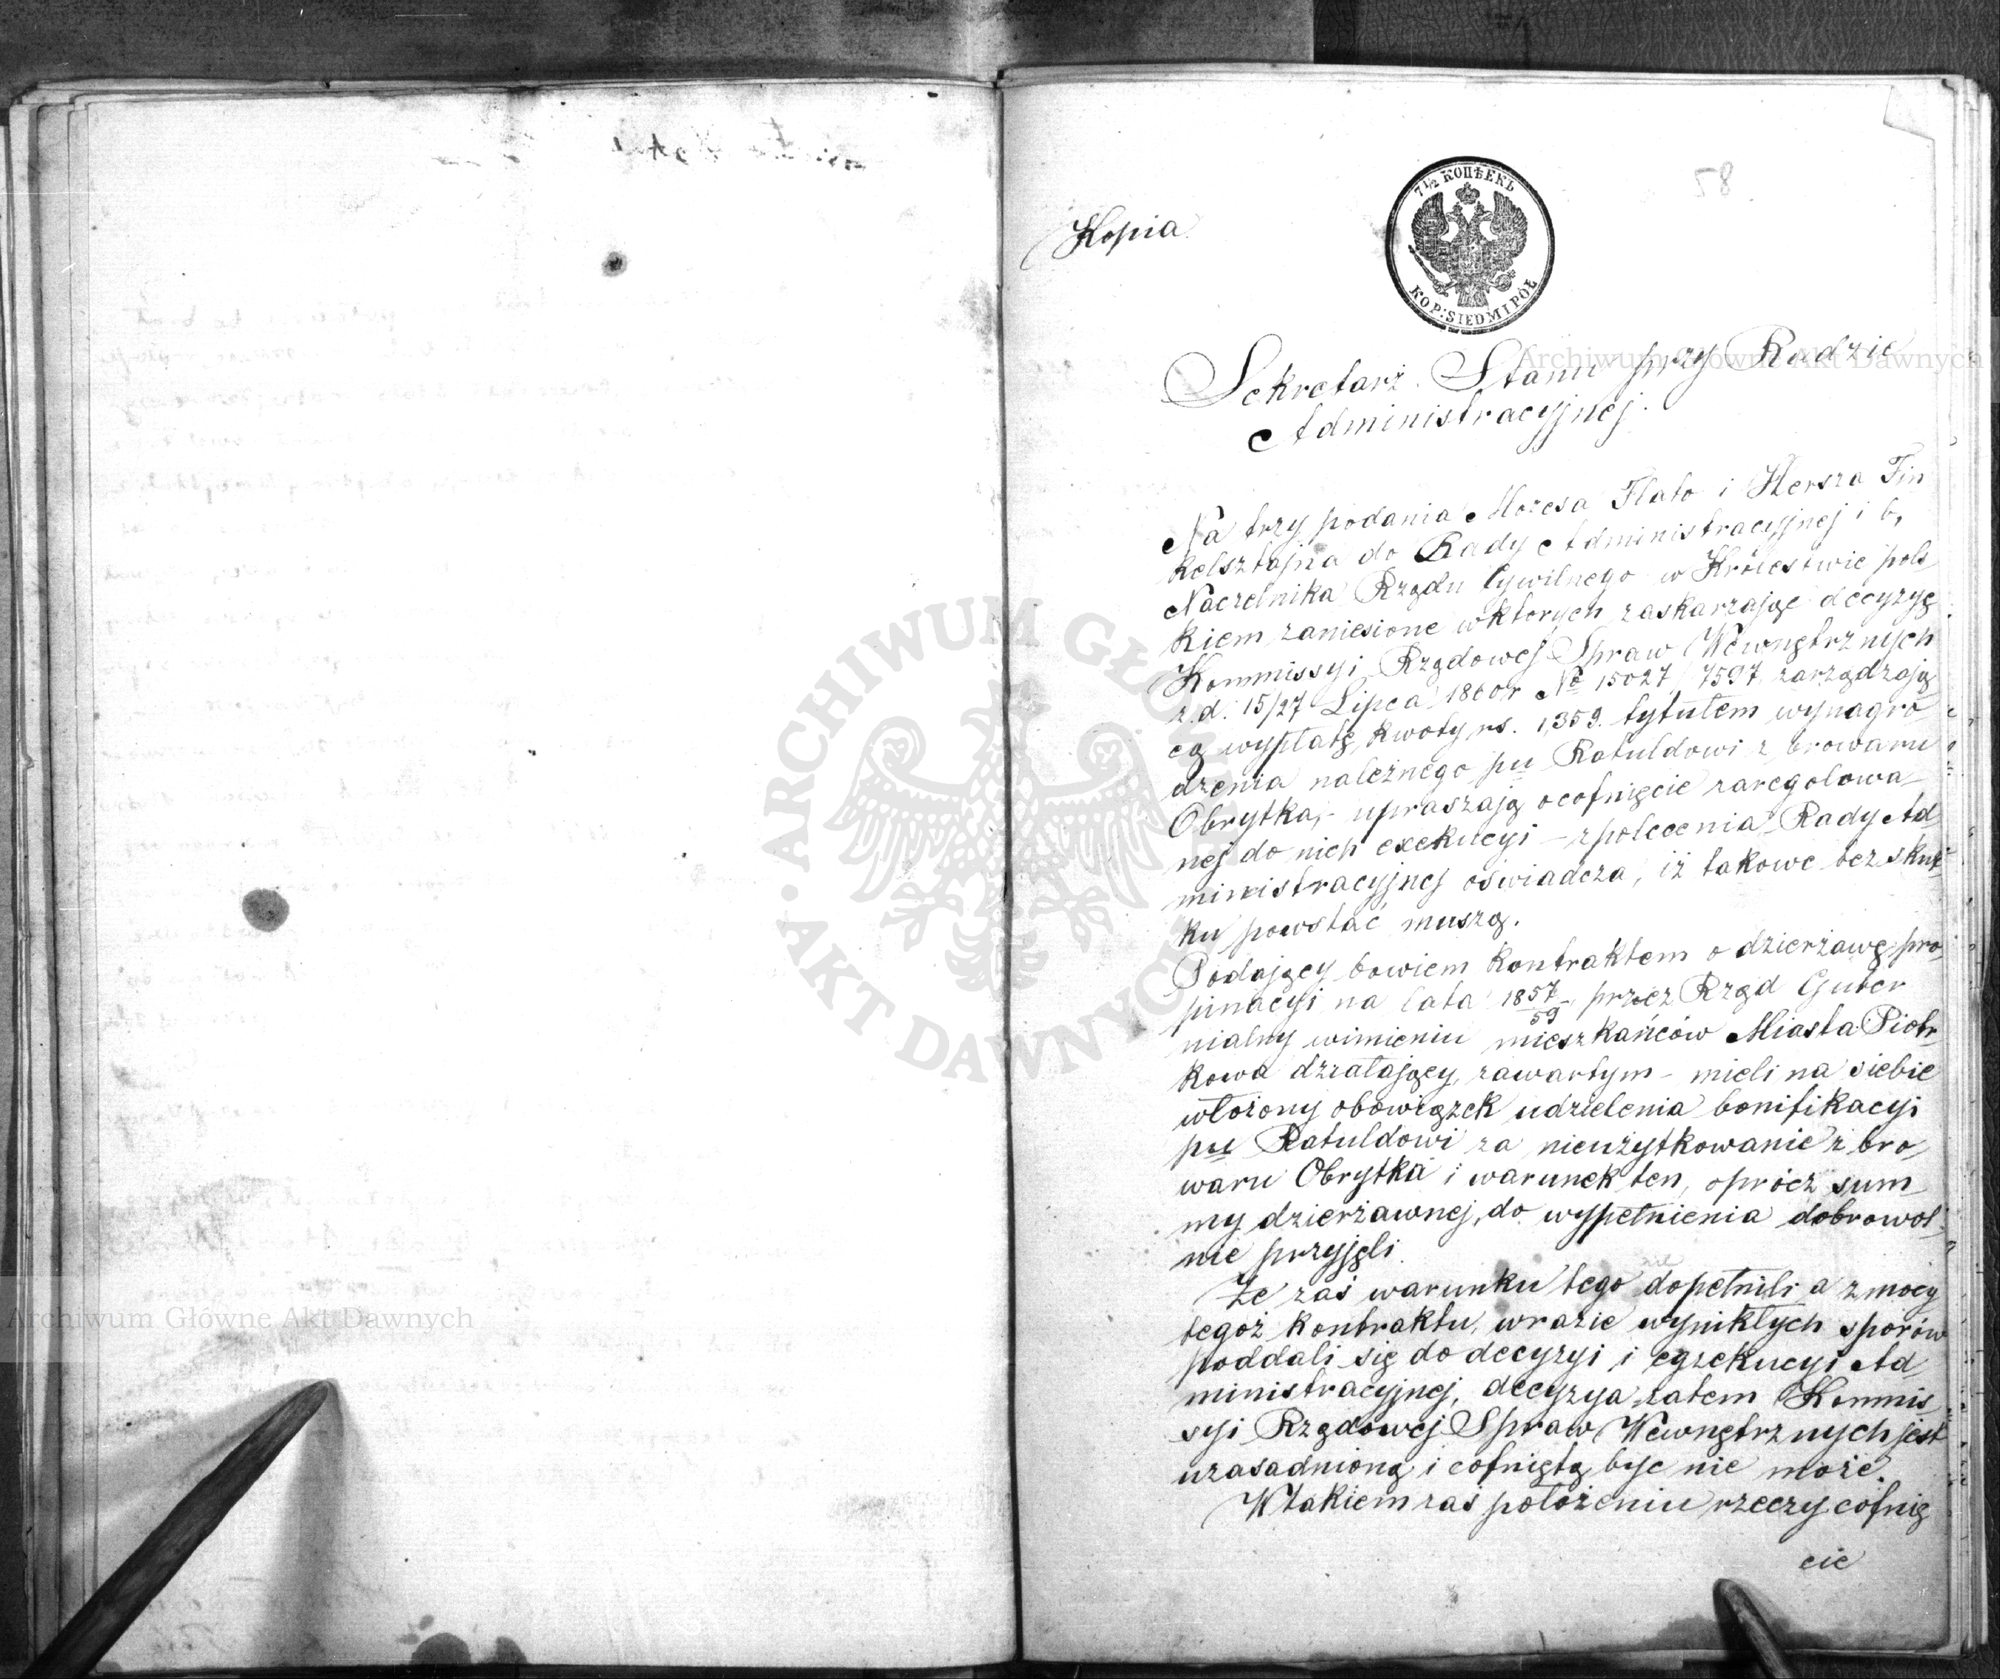 58
Kopia.
7½ КОПѢЕКЪ
KOP: SIEDM I PÓŁ
Sekretarz Stanu przy Radzie
Administracyjnej.
Na trzy podania Mozesa Flato i Hersza Fin
kelsztajna do Rady Administracyjnej i b,
Naczelnika Rządu Cywilnego w Królestwie pols
kiem zaniesione wktorych zaskarzając decyzyę
Kommissyi Rządowej Spraw Wewnętrznych
z. d. 15/27 Lipca 1860 r № 15027/7597 zarządzają
cą wypłatę kwoty rs. 1,359. tytułem wynagro
dzenia należnego pu Ratuldowi z browaru
Obrytka,- upraszają ocofnięcie zaregolowa-
nej do nich exekucyi - zpolecenia Rady Ad-
ministracyjnej oświadcza, iż takowe bez skut
ku powstać muszą.
Podający bowiem kontraktem o dzierżawę pro
pinacyi na lata 1857/59 - przez Rząd Guber
nialny wimieniu mieszkańców Miasta Piotr-
kowa działający zawartym - mieli na siebie
włożony obowiązek udzielenia bonifikacyi
pu Ratuldowi za nieużytkowanie z bro
waru Obrytka i warunek ten, oprócz sum
my dzierżawnej, do wypełnienia dobrowol
nie przyjęli.
Że zaś warunku tego nie dopełnili a zmocy
tegoż kontraktu, wrazie wynikłych sporów
poddali się do decyzyi i egzekucyi Ad
ministracyjnej, decyzya zatem Kommis
syi Rządowej Spraw Wewnętrznych jest
uzasadnioną i cofniętą byc nie może.
Wtakiem zaś położeniu rzeczy cofnię
cie
Archiwum Główne Akt Dawnych
Archiwum Główne Akt Dawnych
ARCHIWUM GŁÓWNE
AKT DAWNYCH